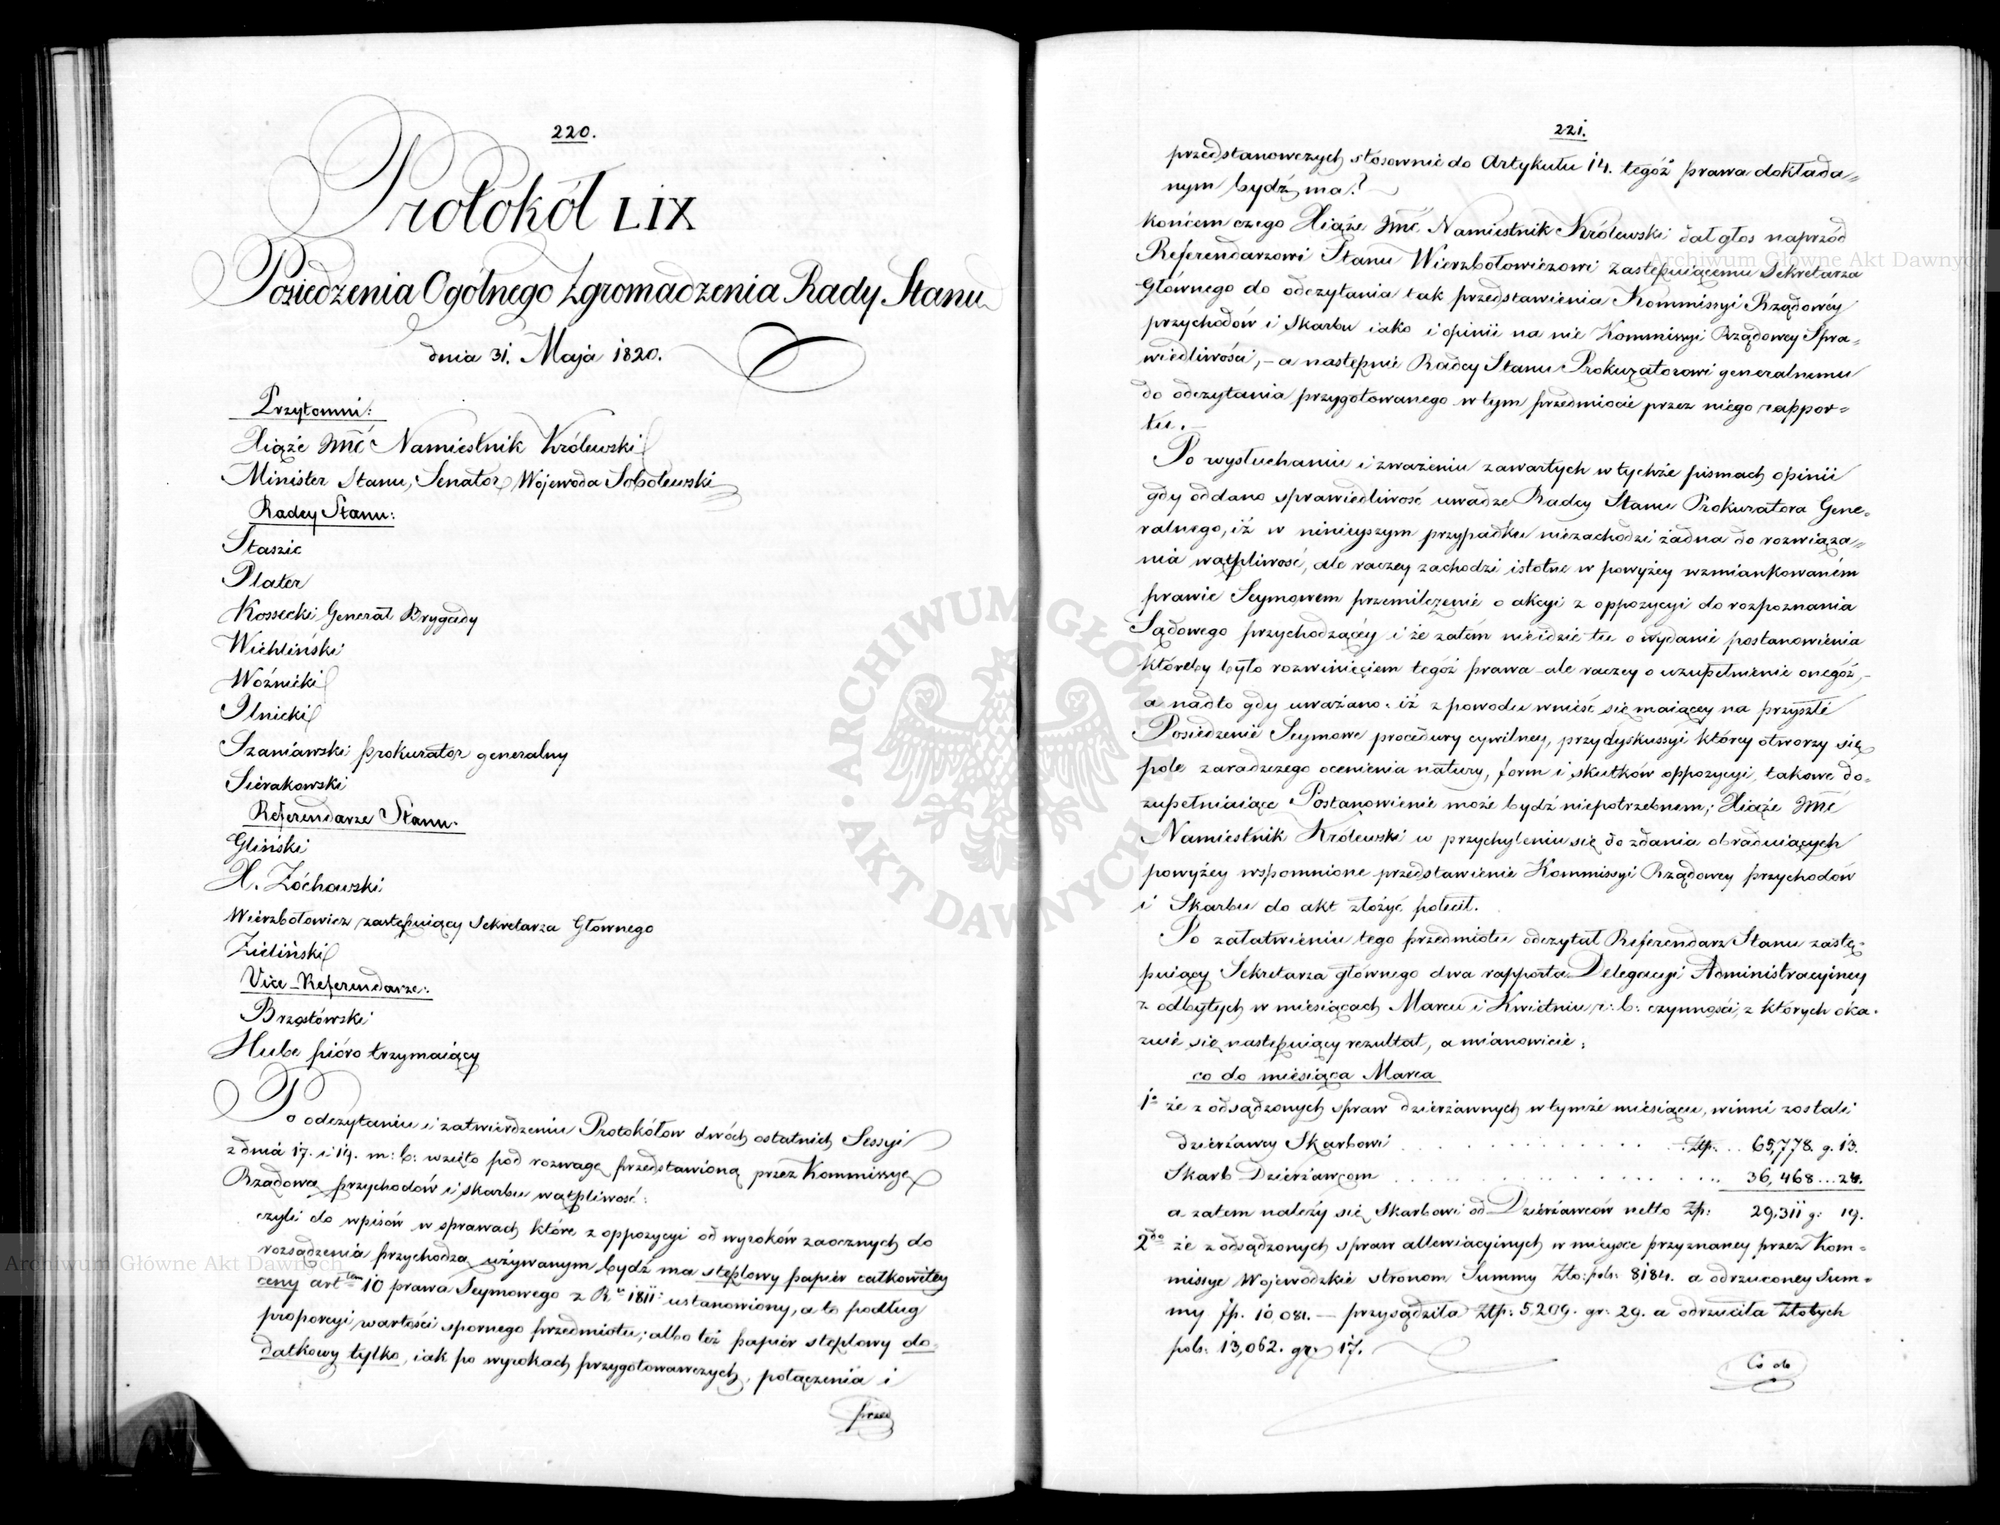 220.
Protokół LIX
Posiedzenia Ogólnego Zgromadzenia Rady Stanu
dnia 31. Maja 1820.
Przytomni:
Xiąże Jmć Namiestnik Królewski
Minister Stanu, Senator, Wojewoda Sobolewski
Radcy Stanu:
Staszic
Plater
Kossecki Generał Brygady
Wichliński
Woźnicki
Ilnicki
Szaniawski prokurator generalny
Sierakowski
Referendarze Stanu.
Gliński
X. Żóchowski
Wierzbołowicz zastępuiący Sekretarza Głównego
Zieliński
Vice-Referendarze:
Brzostowski
Hube pióro trzymaiący
Po odczytaniu i zatwierdzeniu Protokółow dwóch ostatnich Sessyi
z dnia 17. i 19. m: b: wzięto pod rozwagę przedstawioną przez Kommissyę
Rządową przychodów i skarbu wątpliwość:
czyli do wpisów w sprawach które z oppozycyi od wyroków zaocznych do
rozsądzenia przychodzą używanym bydź ma steplowy papier całkowitey
ceny art:łem 10 prawa Seymowego z Ru 1811: ustanowiony, a to podług
proporcyi wartości spornego przedmiotu; albo też papier steplowy do=
datkowy tylko, iak po wyrokach przygotowawczych, połączenia i
przed
221.
przedstanowczych stosownie do Artykułu 14. tegóż prawa dokłada=
nym bydź ma?
końcem czego Xiąże Jmć Namiestnik Królewski dał głos naprzód
Referendarzowi Stanu Wierzbołowiczowi zastępuiącemu Sekretarza
Głównego do odczytania tak przedstawienia Kommissyi Rządowéy
przychodów i Skarbu iako i opinii na nie Kommissyi Rządowey Spra=
wiedliwości, – a następnie Radcy Stanu Prokuratorowi generalnemu
do odczytania przygotowanego w tym przedmiocie przez niego rappor=
tu. –
Po wysłuchaniu i zważeniu zawartych w tychże pismach opinii
gdy oddano sprawiedliwość uwadze Radcy Stanu Prokuratora Gene=
ralnego, iż w ninieyszym przypadku niezachodzi żadna do rozwiąza=
nia wątpliwość, ale raczey zachodzi istotne w powyżey wzmiankowaném
prawie Seymowem przemilczenie o akcyi z oppozycyi do rozpoznania
Sądowego przychodzącéy i że zatém nieidzie tu o wydanie postanowienia
któreby było rozwinięciem tegóż prawa ale raczey o uzupełnienie onegóż, –
a nadto gdy uważano. iż z powodu wnieść się maiącey na przyszłe
Posiedzenie Seymowe procedury cywilney, przy dyskussyi którey otworzy się
pole zaradczego ocenienia natury, form i skutków oppozycyi, takowe do=
zupełniaiące Postanowienie może bydź niepotrzebnem; Xiąże Jmć
Namiestnik Królewski w przychyleniu się do zdania obraduiących
powyżey wspomnione przedstawienie Kommissyi Rządowey przychodów
i Skarbu do akt złożyć polecił.
Po załatwieniu tego przedmiotu odczytał Referendarz Stanu zastę=
puiący Sekretarza głównego dwa rapporta Delegacyi Administracyiney
z odbytych w miesiącach Marcu i Kwietniu r: b: czynności, z których oka.
zuie się następuiący rezultat, a mianowicie;
co do miesiąca Marca
1o że z odsądzonych spraw dzierżawnych w tymże miesiącu, winni zostali
dzierżawcy Skarbowi . . . . . . . . . Złp. . . 65,778. g. 13.
Skarb Dzierżawcom . . . . . . . . . 36,468 . . . 24.
a zatem należy się Skarbowi od Dzierżawców netto Zp: 29,311 g: 19.
2do że z odsądzonych spraw allewiacyinych w mieysce przyznaney przez Kom=
missye Wojewódzkie stronom Summy Zło: pols: 8184. a odrzuconey Sum=
my Zp. 10,081. — przysądziła Złp: 5,209. gr: 29. a odrzuciła Złotych
pols: 13,062. gr: 17.
Co do
Archiwum Główne Akt Dawnych
Archiwum Główne Akt Dawnych
ARCHIWUM GŁÓWNE AKT DAWNYCH